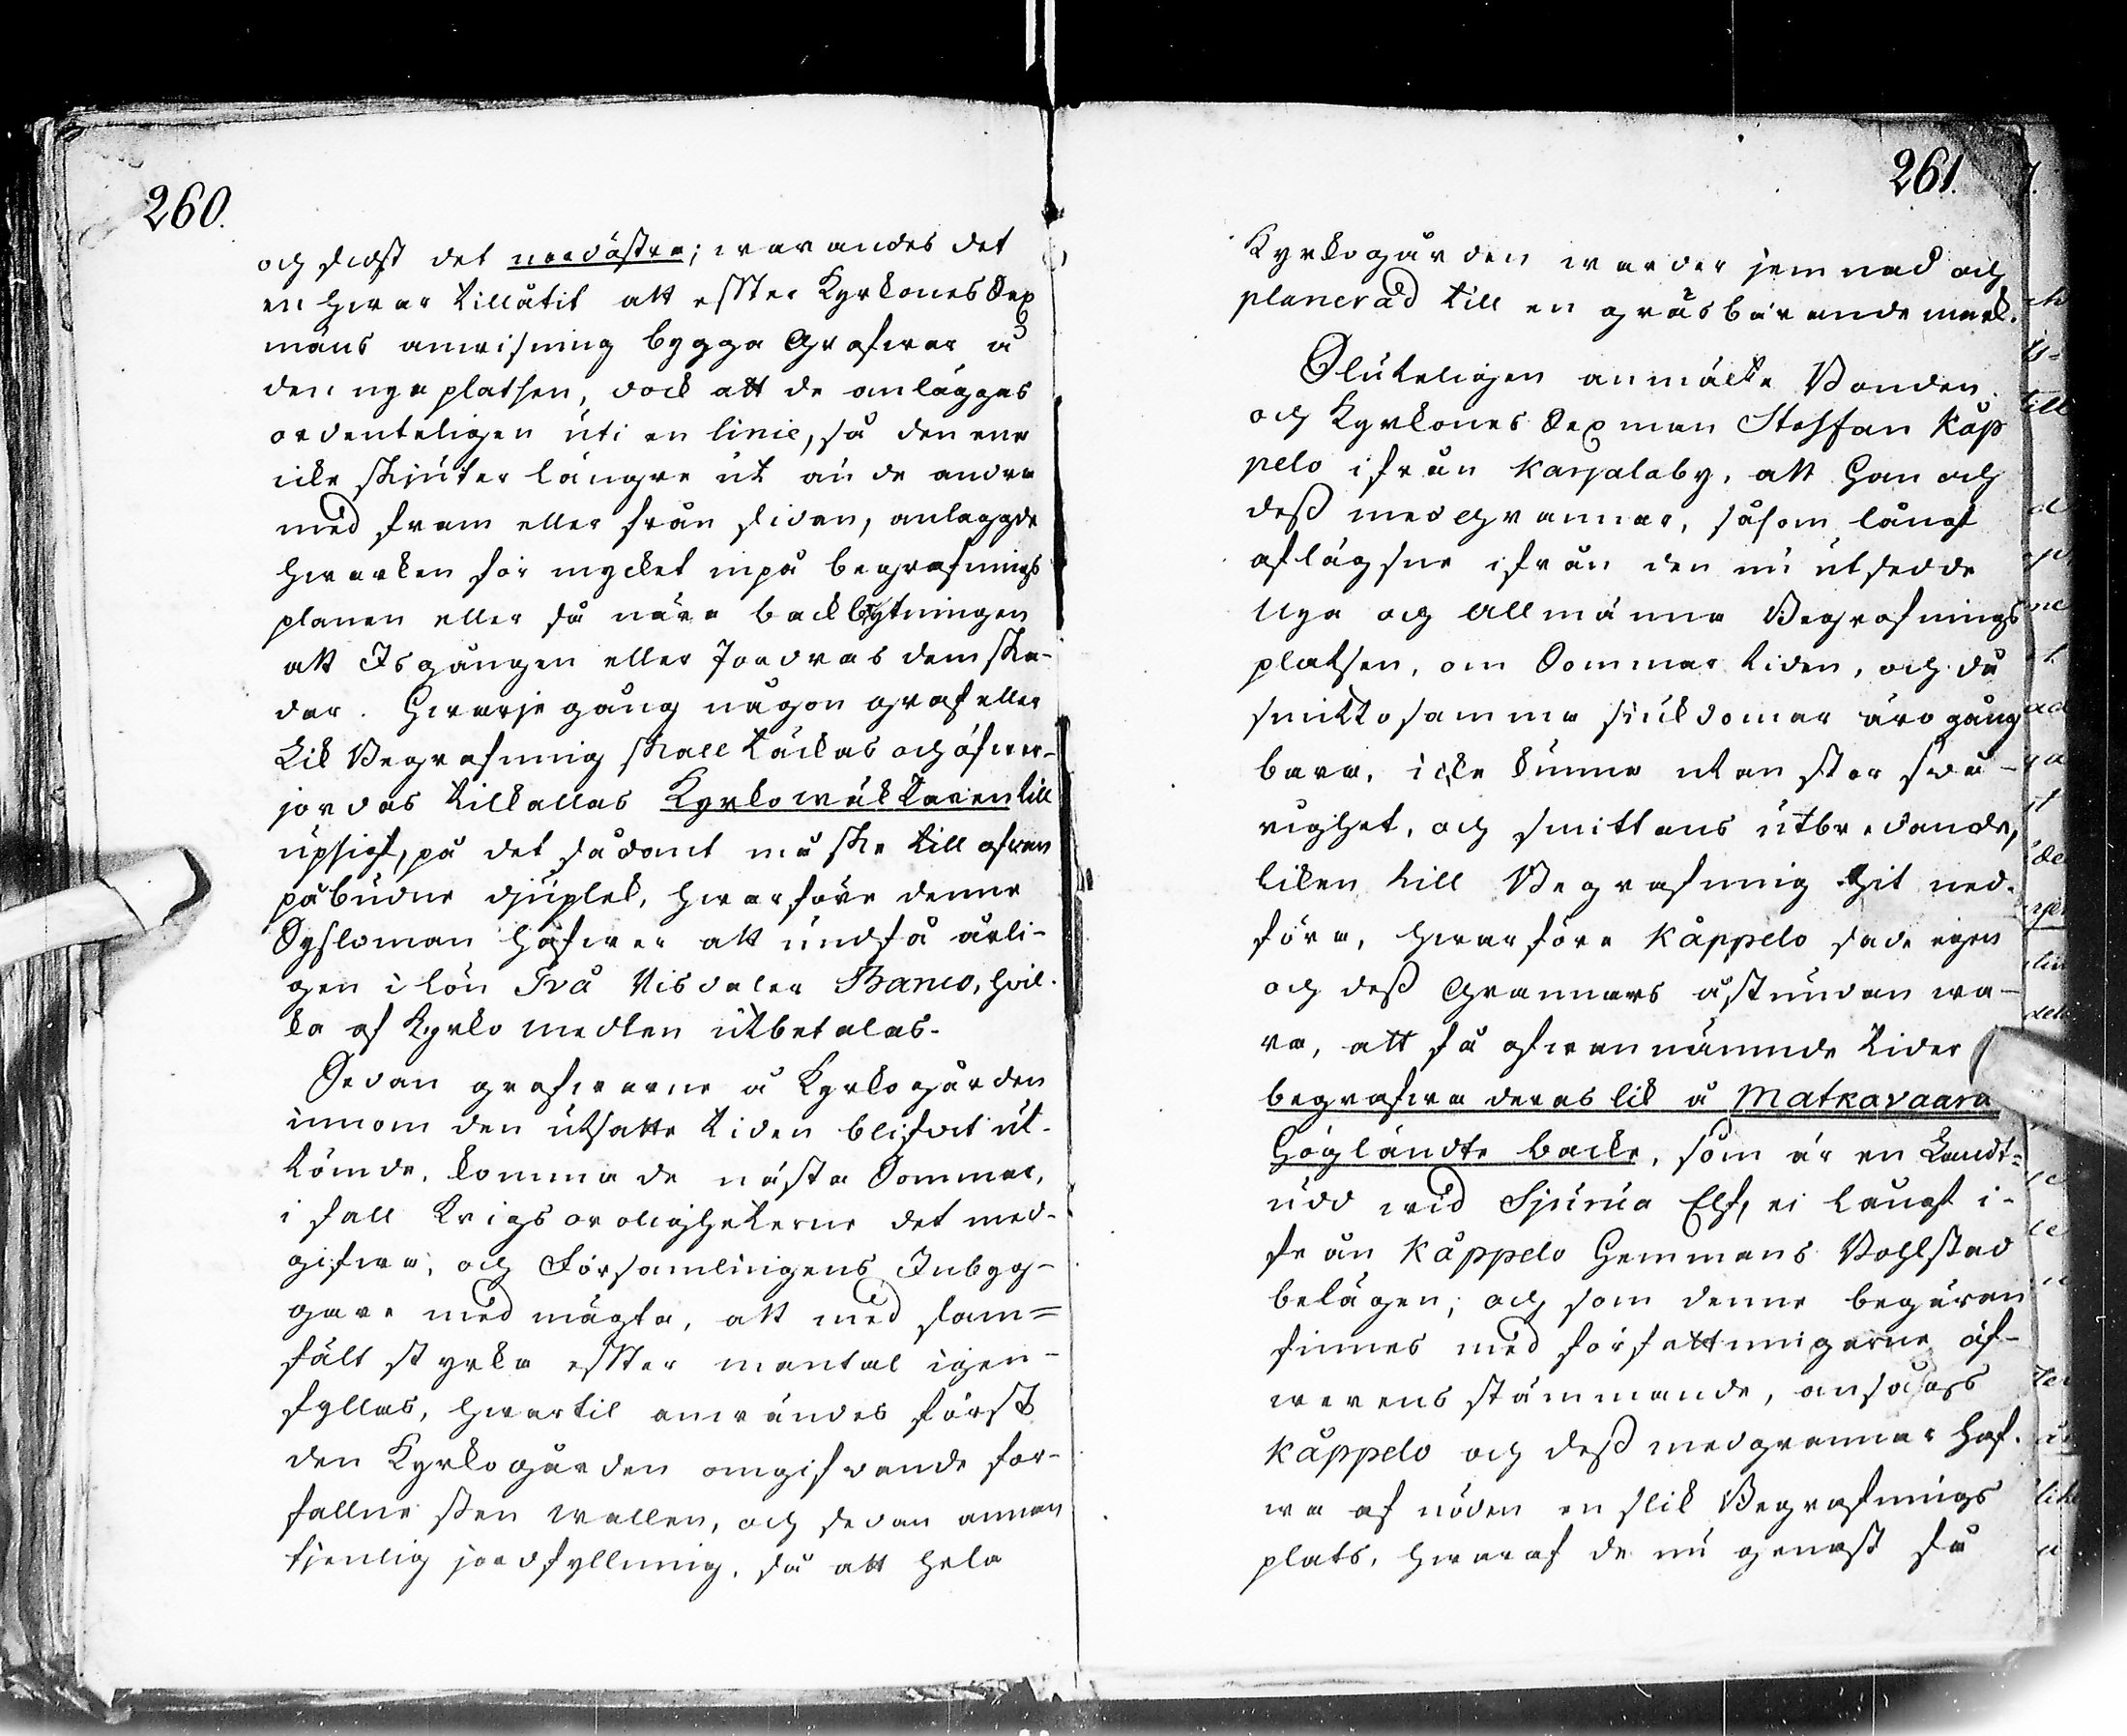 260.
och sidst det nordöstra; warandes det
en hwar tillåtit att effter Kyrkones Sex
mäns anwisning bygga Grafwar å
den nya platsen, dock att de anläggas
ordenteligen uti en linie, så den ena
icke skjuter längre ut än de andra
med fram eller från sidan, anlaggde
hwarken för mycket inpå begrafnings
planen eller så nära backbrytningen
att Isgången eller Jordras dem ska-
dar. Hwarje gång någon graf eller
Lik Begrafning skall täckas och öfwer-
jordas tillkallas Kyrkowäktaren till
upsigt, på det sådant må ske till ofwan
påbudne djuplek, hwarföre denne
Syssloman häfwer att undfå årli-
gen i lön Två Risdaler Banco, hvil-
ka af Kyrko medlen utbetalas.
Sedan grafwarne å Kyrkogården
innom den utsatte tiden blifvit ut-
tömde, komma de nästa Sommar,
i fall Krigsoroligheterne det med-
gifwa, och Församlingens Inbyg-
gare med mägta, att med sam=
fält styrka effter mantal igen-
fyllas, hwartil anwändes först
den Kyrkogården omgifvande för-
fallne sten wallen, och sedan annan
tjenlig jordfyllning, så att hela
261.
Kyrkogården warder jemnad och
planerad till en gräsbärande mark.
Sluteligen anmälte Bonden
och Kyrkones Sexman Steffan Kåp
pelo ifrån Karjalaby, att Han och
dess med Grannar, såsom långt
aflägsne ifrån den nu utsedde
Nya och Allmänna Begrafnings
platsen, om Sommar tiden, och då
smittosamma sjukdomar äro gång
bara, icke kunna utan stor swå-
righet, och smittans utbredande,
liken till Begrafning hit ned-
föra, hwarföre Kåppelo sade egen
och dess Grannars åstundan wa-
ra, att få ofwannämnde tider
begrafwa deras lik å Matkavaara
Högländte backe, som är en Landt=
udd wid Sjurua Elf, ei langt i-
från Kåppelo Hemmans Bohlstad
belägen; och som denne begäran
finnes med författningarne öf-
werens stämmande, ansågs
Kåppelo och dess medgrannar haf-
wa af nöden en slik Begrafnings
plats, hwaraf de nu genast få